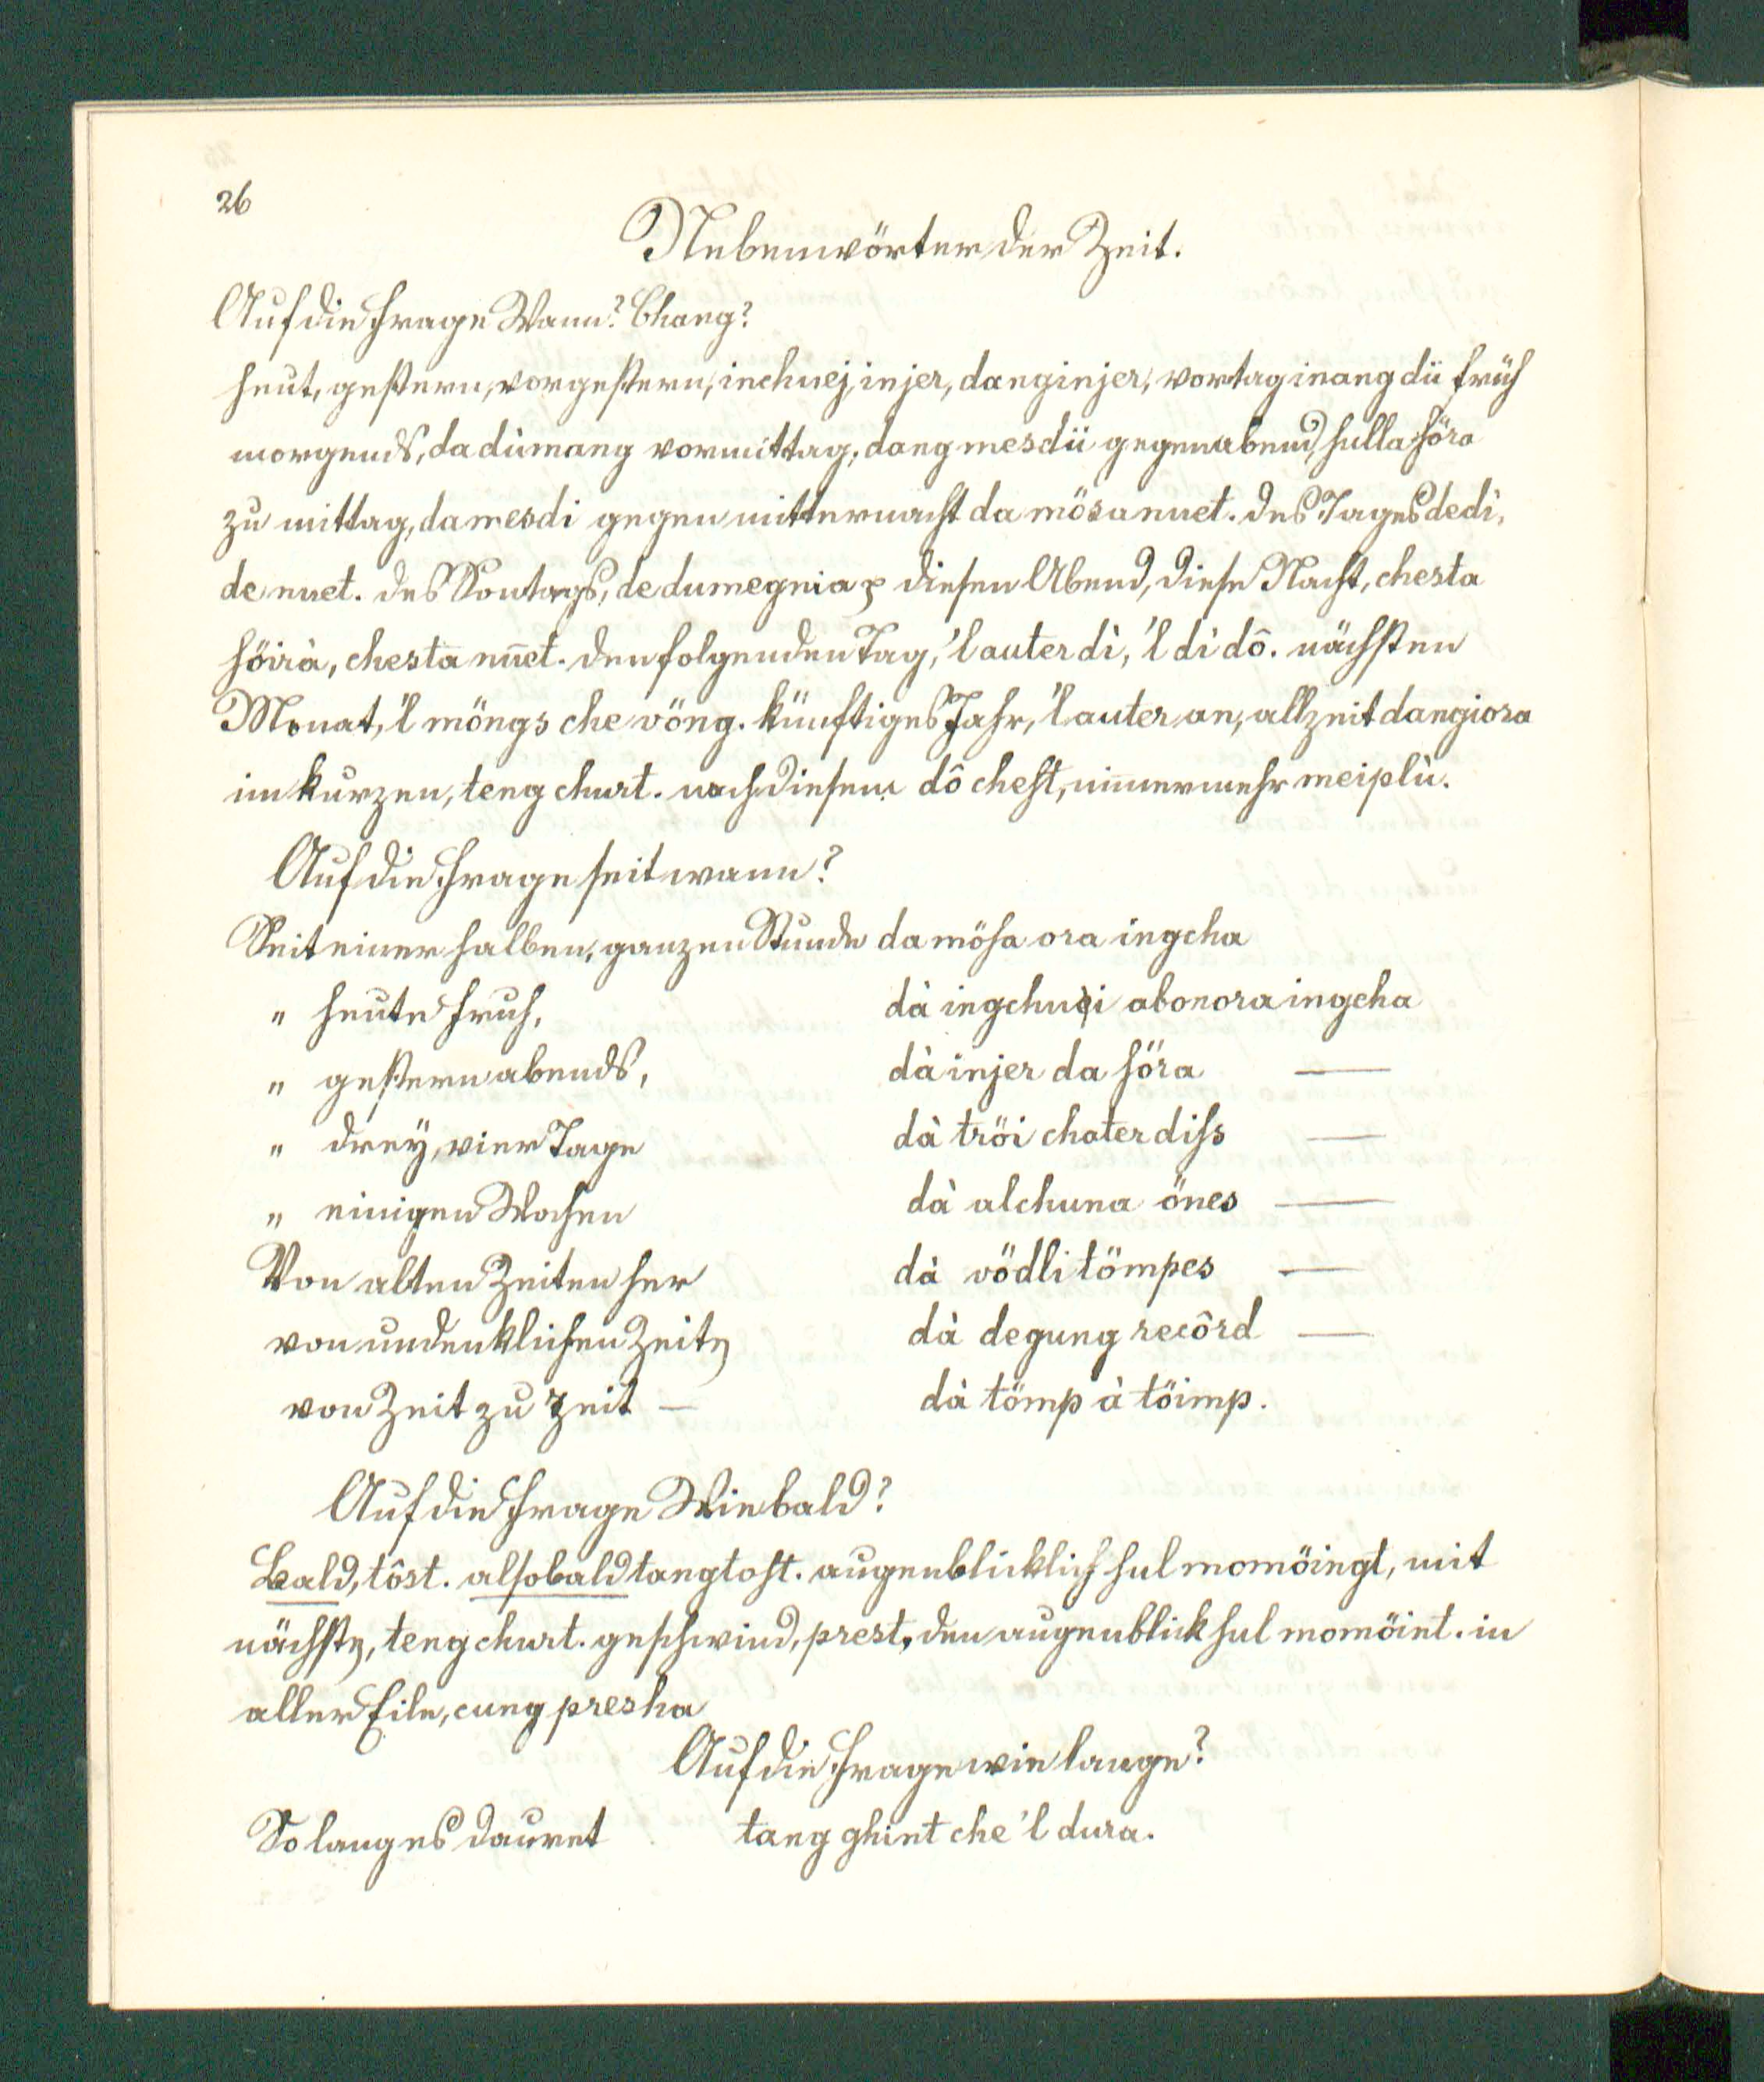 26
Nebenwörter der Zeit.
Auf die Frage Wann? Chang?
heut, gestern, vorgestern, inchuej, injer, danginjer, vortag inang dü früh
morgends, da dùmang vormittag, dang mesdü gegen abend, sulla söra
zu mittag, da mesdi gegen mitternacht da mösa nuet. des Tages de di,
de nuet. des Sontags, de dumegnia diesen Abend, diese Nacht, chesta
söirà, chesta nuet. den folgenden Tag, 'l auter di, 'l di dô. nächsten
Monat, 'l möngs che vöng. künftiges Jahr, 'l auter an, allzeit dangiora
im kurzen, teng churt. nach diesem dô chest, nimmermehr meiplù.
Auf die Frage seit wann?
Seit einer halben, ganzen Stunde da mösa ora ingcha
" heute fruh, dà ingchuei abonora ingcha
" gestern abends, dà injer da söra —
" dreÿ, vier Tage dà tröi chater diss —
" einigen Wochen dà alchuna önes —
Von alten Zeiten her dà vödli tömpes —
von undenklichen Zeiten dà degung recôrd —
von Zeit zu Zeit — dà tömp à töimp.
Auf die Frage Wie bald?
Bald, tôst. alsobald tangtost. augenblicklich sul momöingt, mit
nächsten, teng churt. geschwind, prest, den augenblick sul momöint. in
aller Eile, cung presha
Auf die Frage wie lange?
So lang es dauret tang ghint che 'l dura.